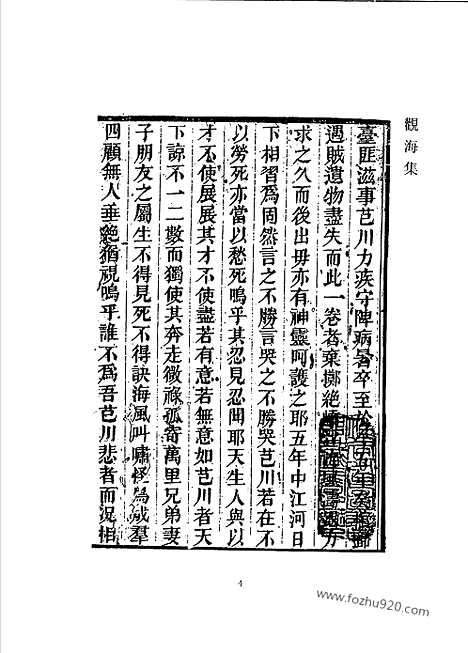 觀海集
臺匪滋事芑川力疾守陴病暑卒至於
遇賊遺物盡失而此一卷者棄擲絶
求之久而後出毋亦有神靈呵護之耶五年中江河日
下相習為固然言之不勝言哭之不勝哭芑川若在不
以勞死亦當以愁死嗚乎其忍見忍聞耶天生人與以
才不使展展其才不使盡若有意若無意如芑川者天
下諒不一二數而獨使其奔走微祿孤寄萬里兄弟妻
子朋友之屬生不得見死不得訣海風叫嘯怪鳥成羣
四顧無人垂絶猶視嗚乎誰不為吾芑川悲者而況相
4
www.fozhu920.com